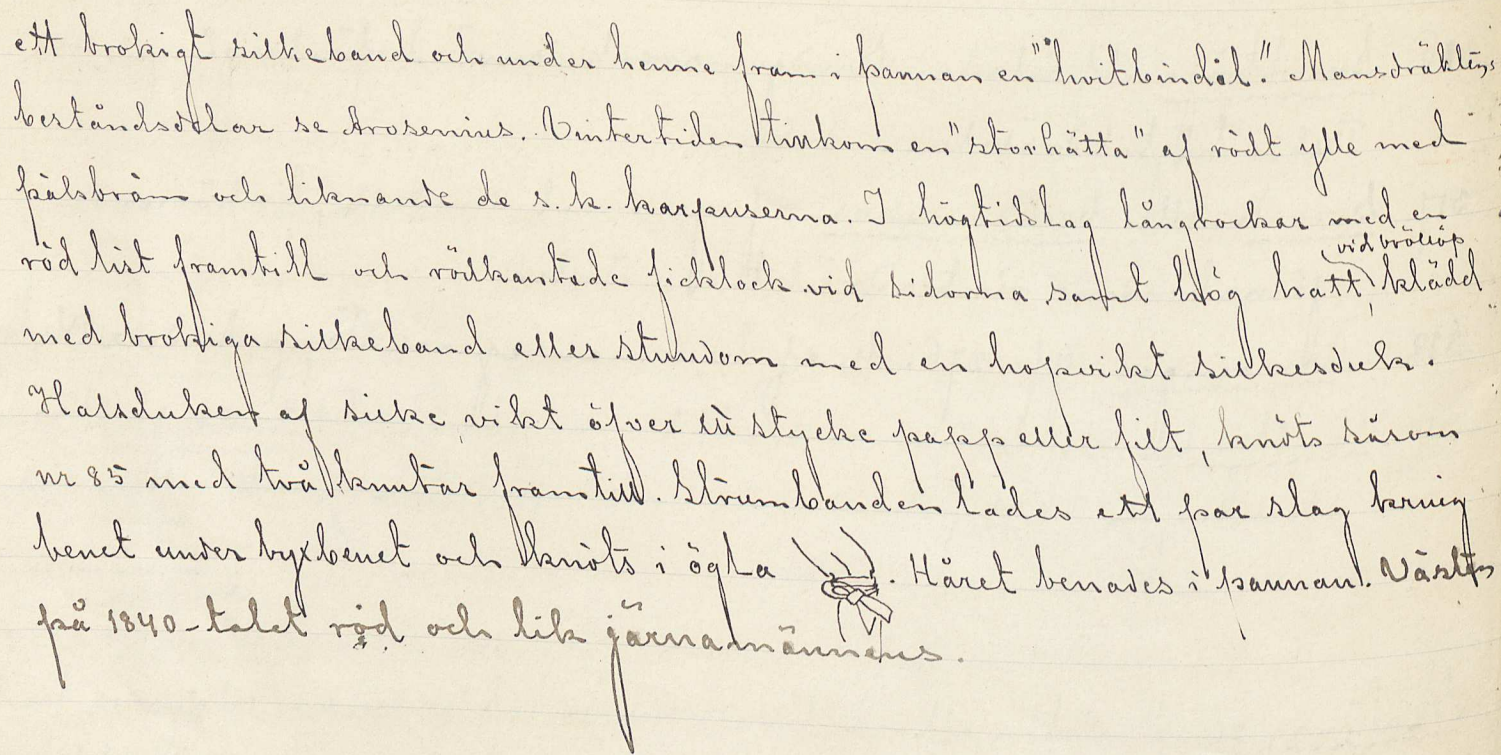 ett brokigt silkeband och under henne fram i pannan en "hvitbindel". Mansdräktens
beståndsdelar se Arosenius. Vintertiden tillkom en "storhätta" af rödt ylle med
pälsbräm och liknande de s.k. karpuserna. I högtidslag långrockar med en
röd list framtill och rödkantade ficklock vid sidorna samt hög hatt, vid bröllop klädd
med brokiga silkeband eller stundom med en hopvikt silkesduk.
Halsduken af silke, vikt öfver ett stycke papp eller filt, knöts såsom
nr 85 med två knutar framtill. Strumbanden lades ett par slag kring
benet under byxbenet och knöts i ögla. Håret benades i pannan. Västen
på 1840-talet röd och lik järnamännens.